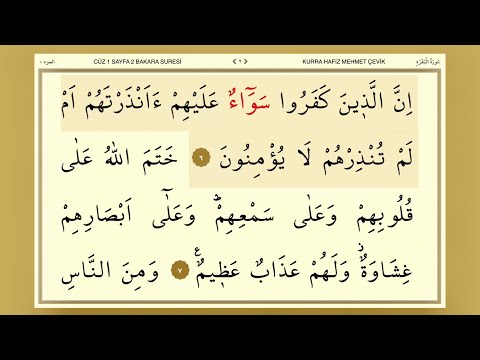 الجزء ١ CÜZ 1 SAYFA 2 BAKARA SURESİ ‹ ٢ › KURRA HAFIZ MEHMET ÇEVİK سُورَةُ الْبَقَرَةِ
اِنَّ الَّذ۪ينَ كَفَرُوا سَوَٓاءٌ عَلَيْهِمْ ءَاَنْذَرْتَهُمْ اَمْ
لَمْ تُنْذِرْهُمْ لَا يُؤْمِنُونَ ﴿٦﴾ خَتَمَ اللّٰهُ عَلٰى
قُلُوبِهِمْ وَعَلٰى سَمْعِهِمْۜ وَعَلٰٓى اَبْصَارِهِمْ
غِشَاوَةٌۘ وَلَهُمْ عَذَابٌ عَظ۪يمٌ۟ ﴿٧﴾ وَمِنَ النَّاسِ